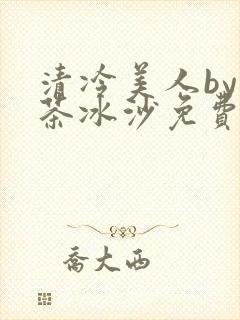 清冷美人by
茶冰沙免費
喬大西